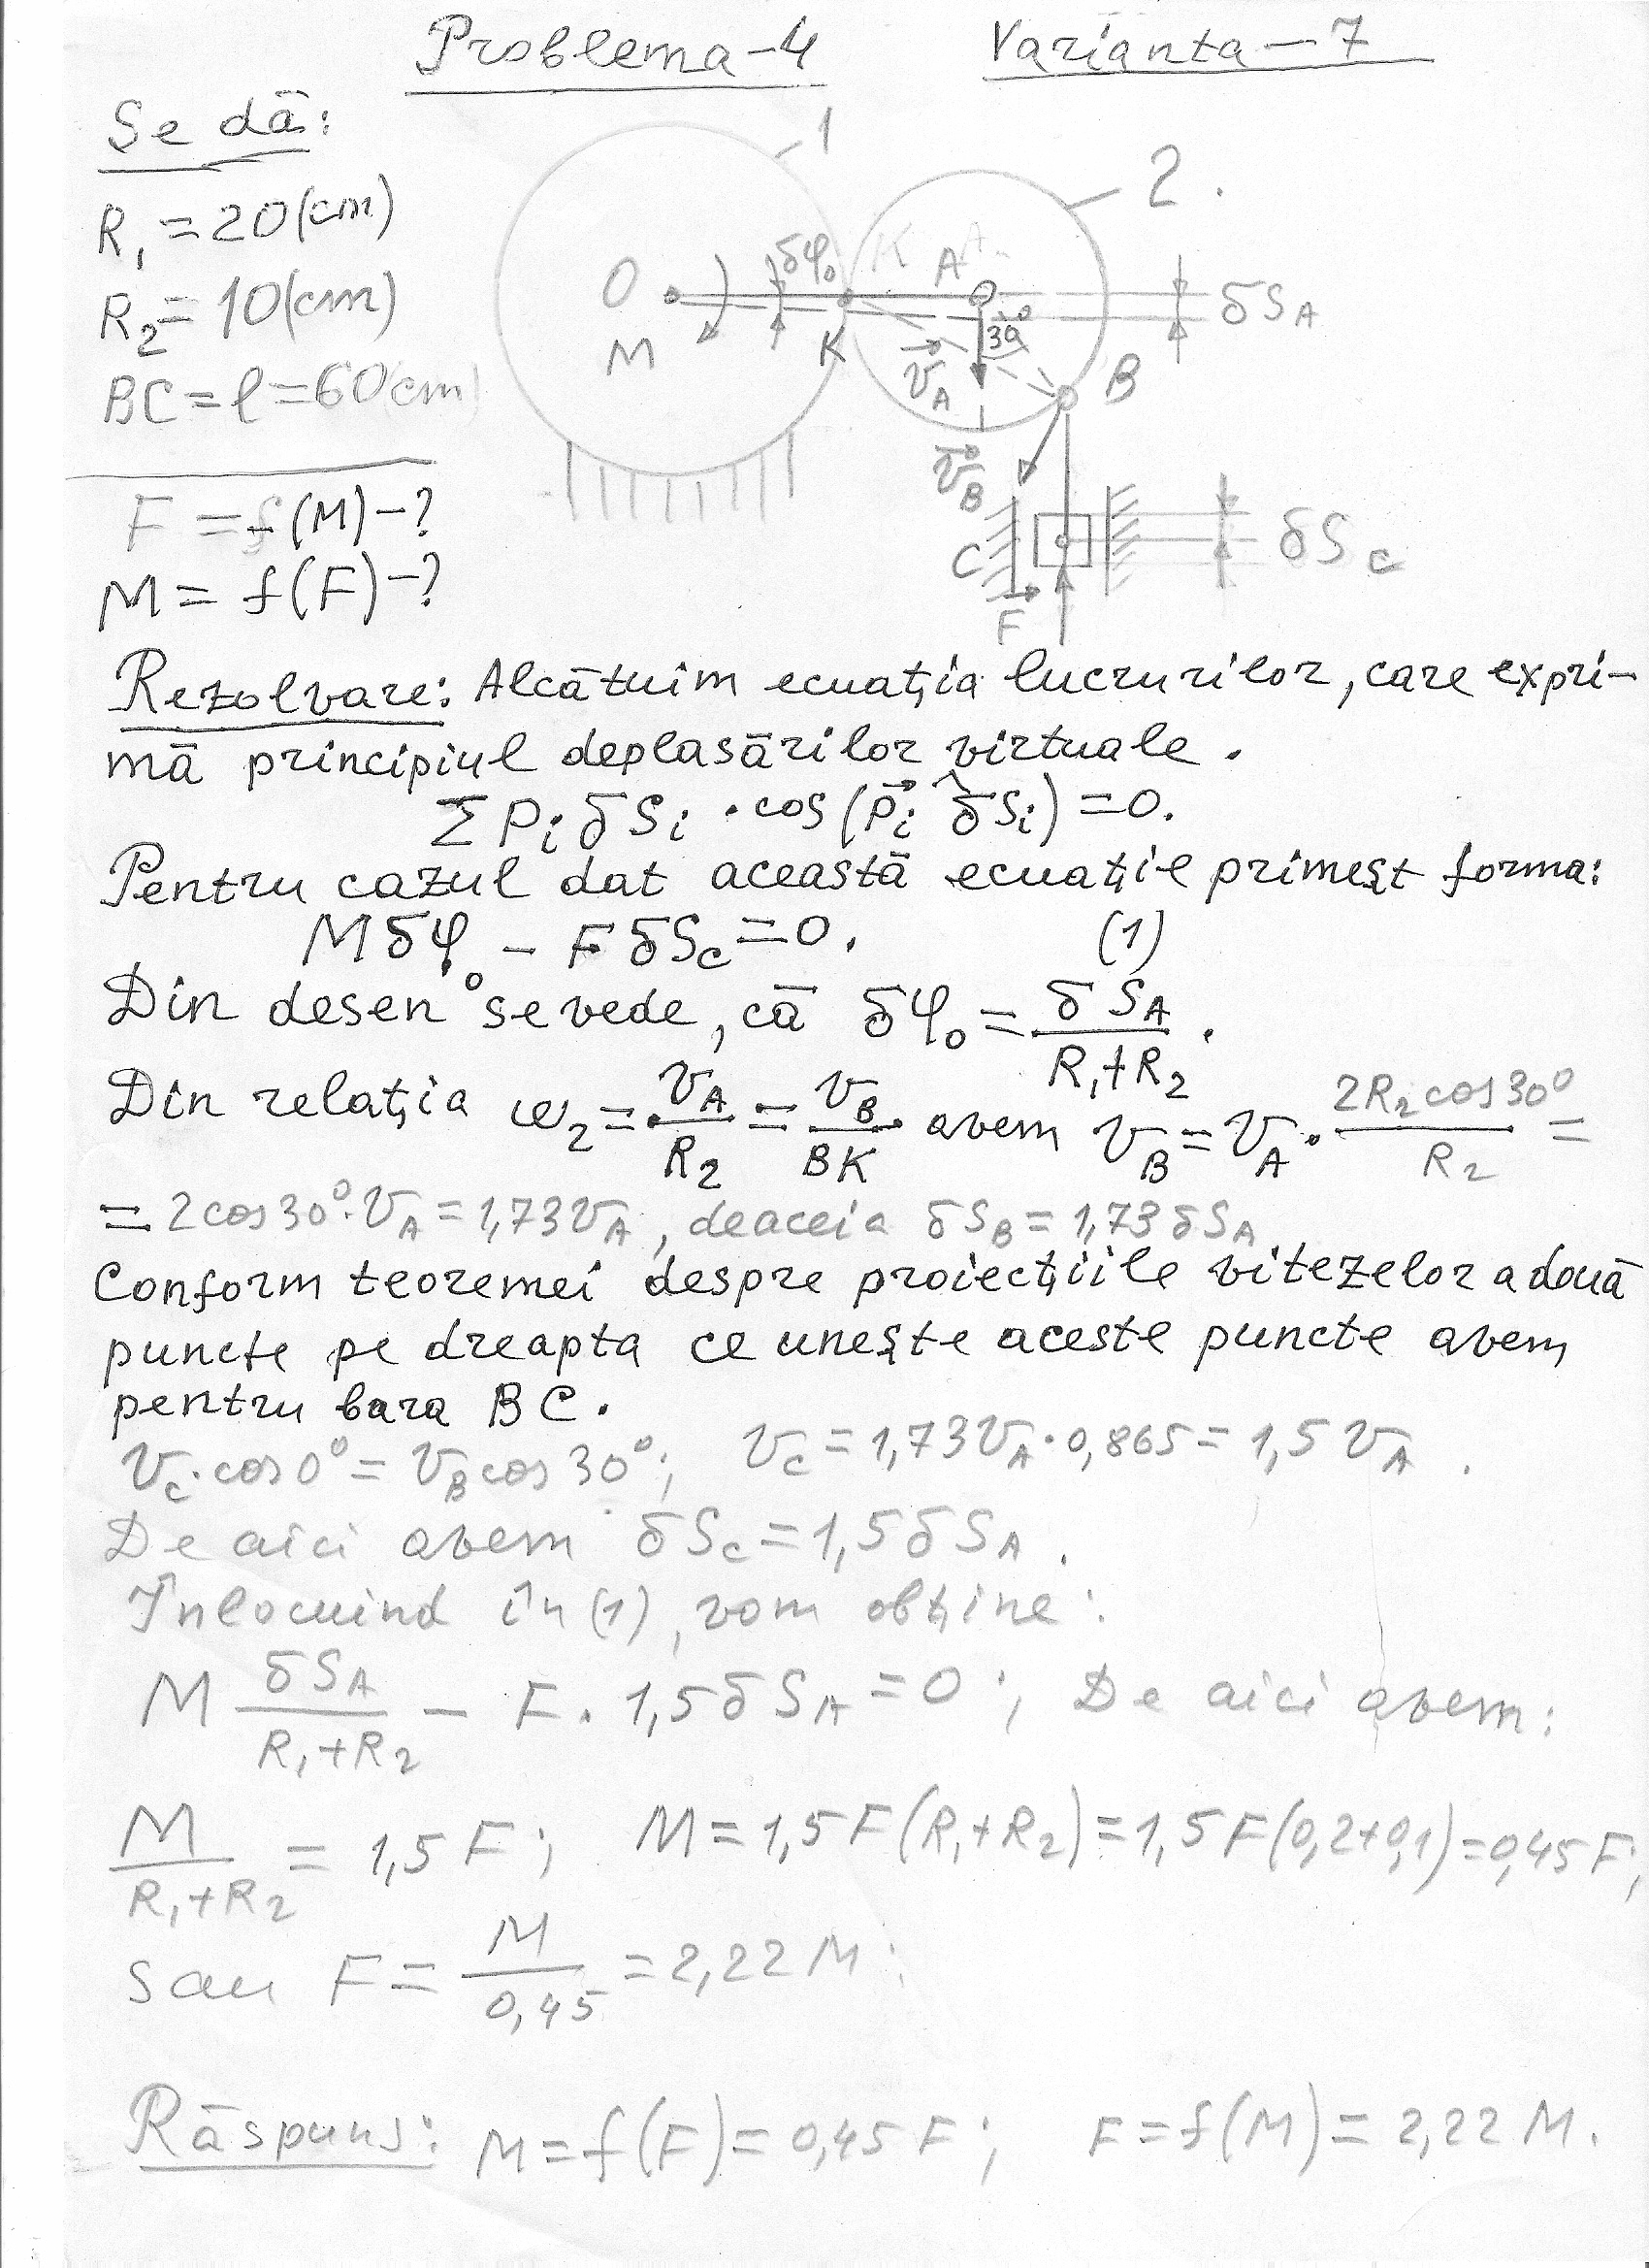 Problema-4 Varianta-7
Se dă:
R₁=20(cm)
R₂=10(cm)
BC=l=60(cm)
F=f(M)-?
M=f(F)-?
1
2.
O
M
δφ₀
K
K
A
A
30°
v⃗_A
B
v⃗_B
C
F
δS_A
δS_c
Rezolvare: Alcătuim ecuația lucrurilor, care expri-
mă principiul deplasărilor virtuale.
Σ Pᵢ δSᵢ · cos(P⃗ᵢ ^ δSᵢ)=0.
Pentru cazul dat această ecuație primeșt forma:
Mδφ₀ - FδS_c=0. (1)
Din desen se vede, că δφ₀ = δS_A/(R₁+R₂).
Din relația ω₂ = v_A/R₂ = v_B/BK avem v_B = v_A · 2R₂cos30°/R₂ =
= 2cos30°·v_A = 1,73v_A, deaceia δS_B = 1,73δS_A
Conform teoremei despre proiecțiile vitezelor a două
puncte pe dreapta ce unește aceste puncte avem
pentru bara BC.
v_c·cos0° = v_B cos30°; v_c = 1,73v_A·0,865 = 1,5v_A.
De aici avem δS_c = 1,5δS_A.
Înlocuind în (1), vom obține:
M δS_A/(R₁+R₂) - F·1,5δS_A = 0; De aici avem:
M/(R₁+R₂) = 1,5F; M=1,5F(R₁+R₂)=1,5F(0,2+0,1)=0,45F;
sau F = M/0,45 = 2,22M;
Răspuns: M=f(F)=0,45F; F=f(M)=2,22M.